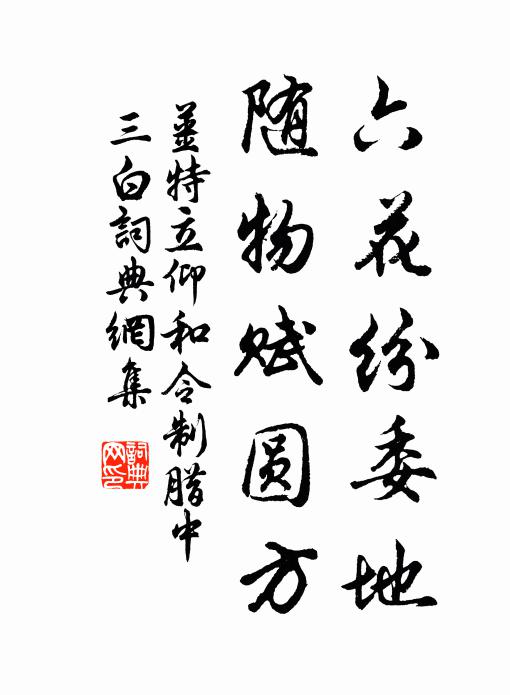 六花纷委地
随物赋圆方
姜特立仰和令制腊中
三白詞典網集
詞典
网印